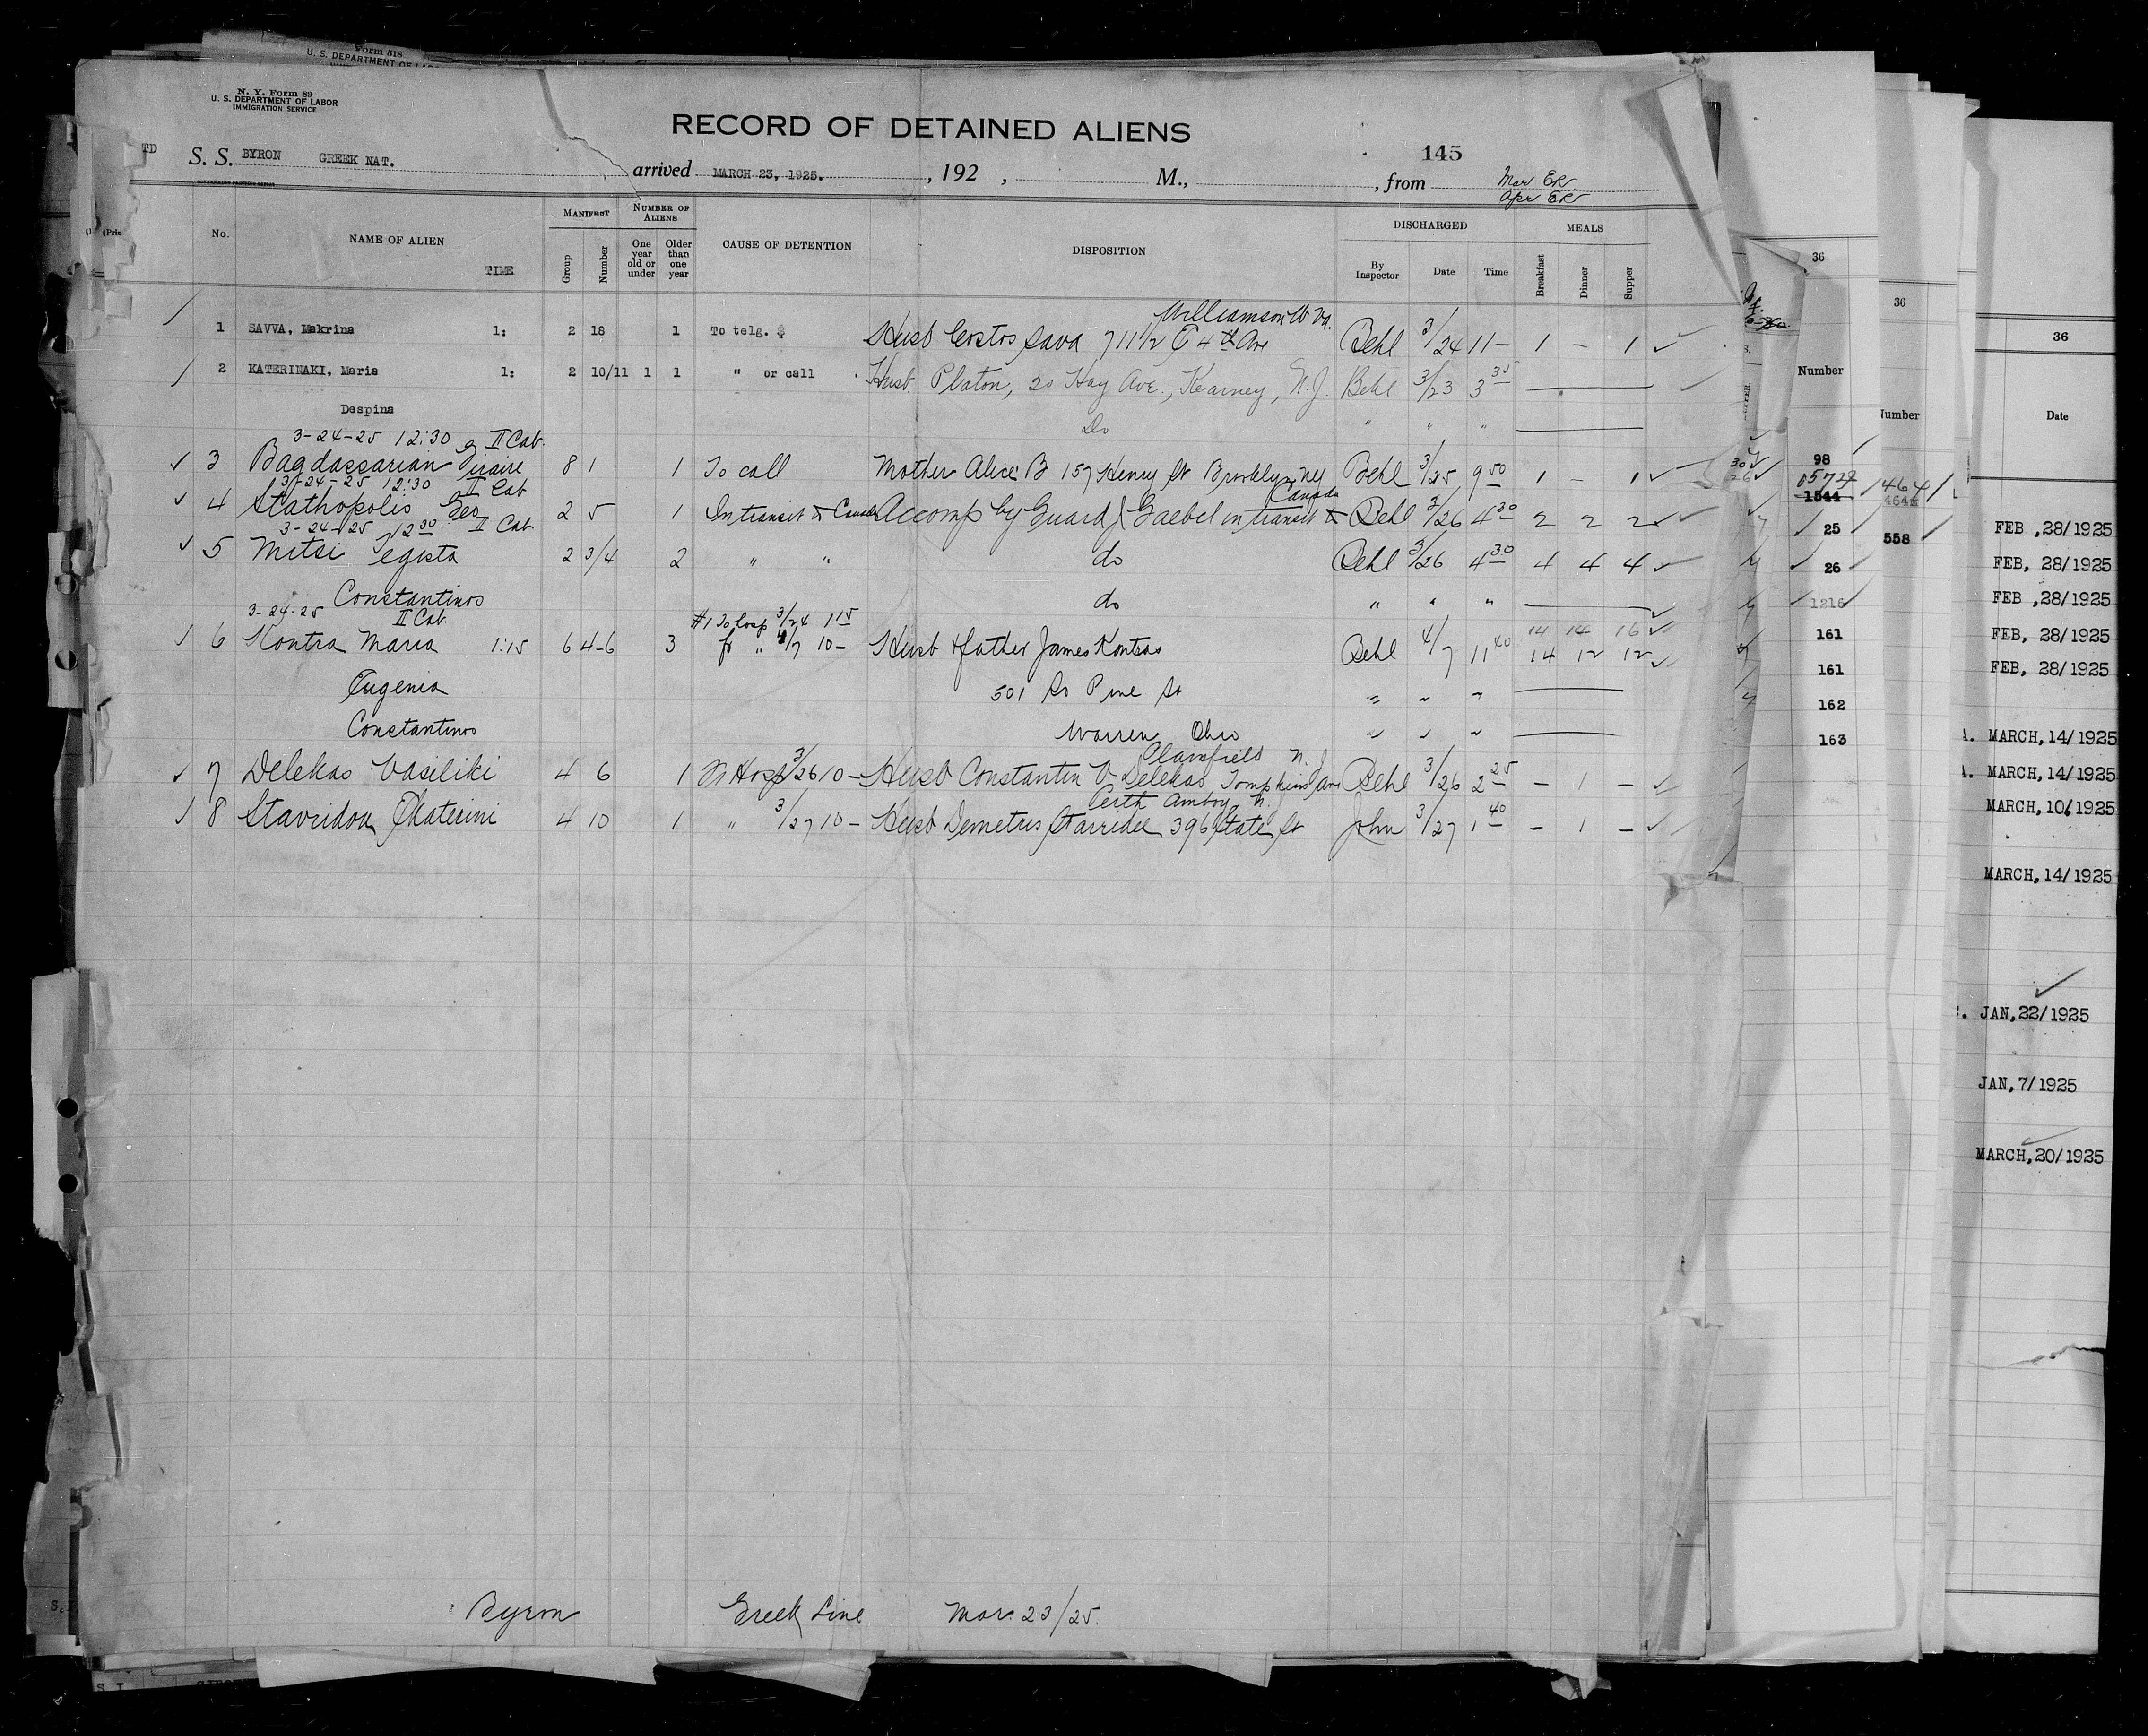 Form 518
U. S. DEPARTMENT OF
N. Y. Form 89
U. S. DEPARTMENT OF LABOR
IMMIGRATION SERVICE
RECORD OF DETAINED ALIENS
145
TD S. S. BYRON GREEK NAT. arrived MARCH 23, 1925. , 192 , M., , from Mar ER
Apr ER
No. NAME OF ALIEN TIME MANIFEST Group Number NUMBER OF ALIENS One year old or under Older than one year CAUSE OF DETENTION DISPOSITION DISCHARGED By Inspector Date Time MEALS Breakfast Dinner Supper
Williamson W Va.
1 SAVVA, Makrina 1: 2 18 1 To telg. $ Husb Costos Sava 711 1/2 E 4th Ave Behl 3/24 11 – 1 – 1 ✓
2 KATERINAKI, Maria 1: 2 10/11 1 1 " or call Husb. Platon, 20 Hoy Ave., Kearney, N.J. Behl 3/23 3 35
Despina Do " " "
3-24-25 12:30 II Cab.
✓ 3 Bagdassarian Firaire 8 1 1 To call Mother Alice B 157 Henry St Brooklyn NY Behl 3/25 9 50 1 – 1 ✓
3-24-25 12:30 II Cab
Canada
✓ 4 Stathopolis Geo 2 5 1 In transit to Canada Accomp by Guard J Gaebel in transit to Behl 3/26 4 30 2 2 2 ✓
3-24-25 12 30 II Cab.
✓ 5 Mitsi Tegista 2 3/4 2 " " do Behl 3/26 4 30 4 4 4 ✓
Constantinos do " " "
3-24-25 II Cab. #1 To hosp 3/24 1 15 14 14 16 ✓
6 Kontra Maria 1:15 6 4-6 3 fr " 4/7 10 – Husb & father James Kontras Behl 4/7 11 40 14 12 12 ✓
Eugenia 501 So Pine St " " "
Constantinos Warren Ohio " " "
Plainfield N. J.
✓ 7 Delekas Vasiliki 4 6 1 Fr Hosp 3/26 10 – Husb Constantin V Delekas Tompkins Ave Behl 3/26 2 25 – 1 – ✓
Perth Amboy N. J.
8 Stavridou Ekaterini 4 10 1 " 3/27 10 – Husb Demetris Stavridee 396 State St John 3/27 1 40 – 1 – ✓
Byron Greek Line Mar. 23/25.
36
Number
98
1544
25
26
1216
161
161
162
163
36
Number
4641
558
36
Date
FEB ,28/1925
FEB, 28/1925
FEB ,28/1925
FEB, 28/1925
FEB, 28/1925
MARCH, 14/1925
MARCH, 14/1925
MARCH, 10/1925
MARCH, 14/1925
JAN, 22/1925
JAN, 7/1925
MARCH, 20/1925